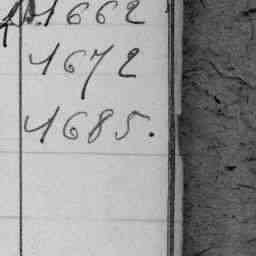 1662
1672
1685.